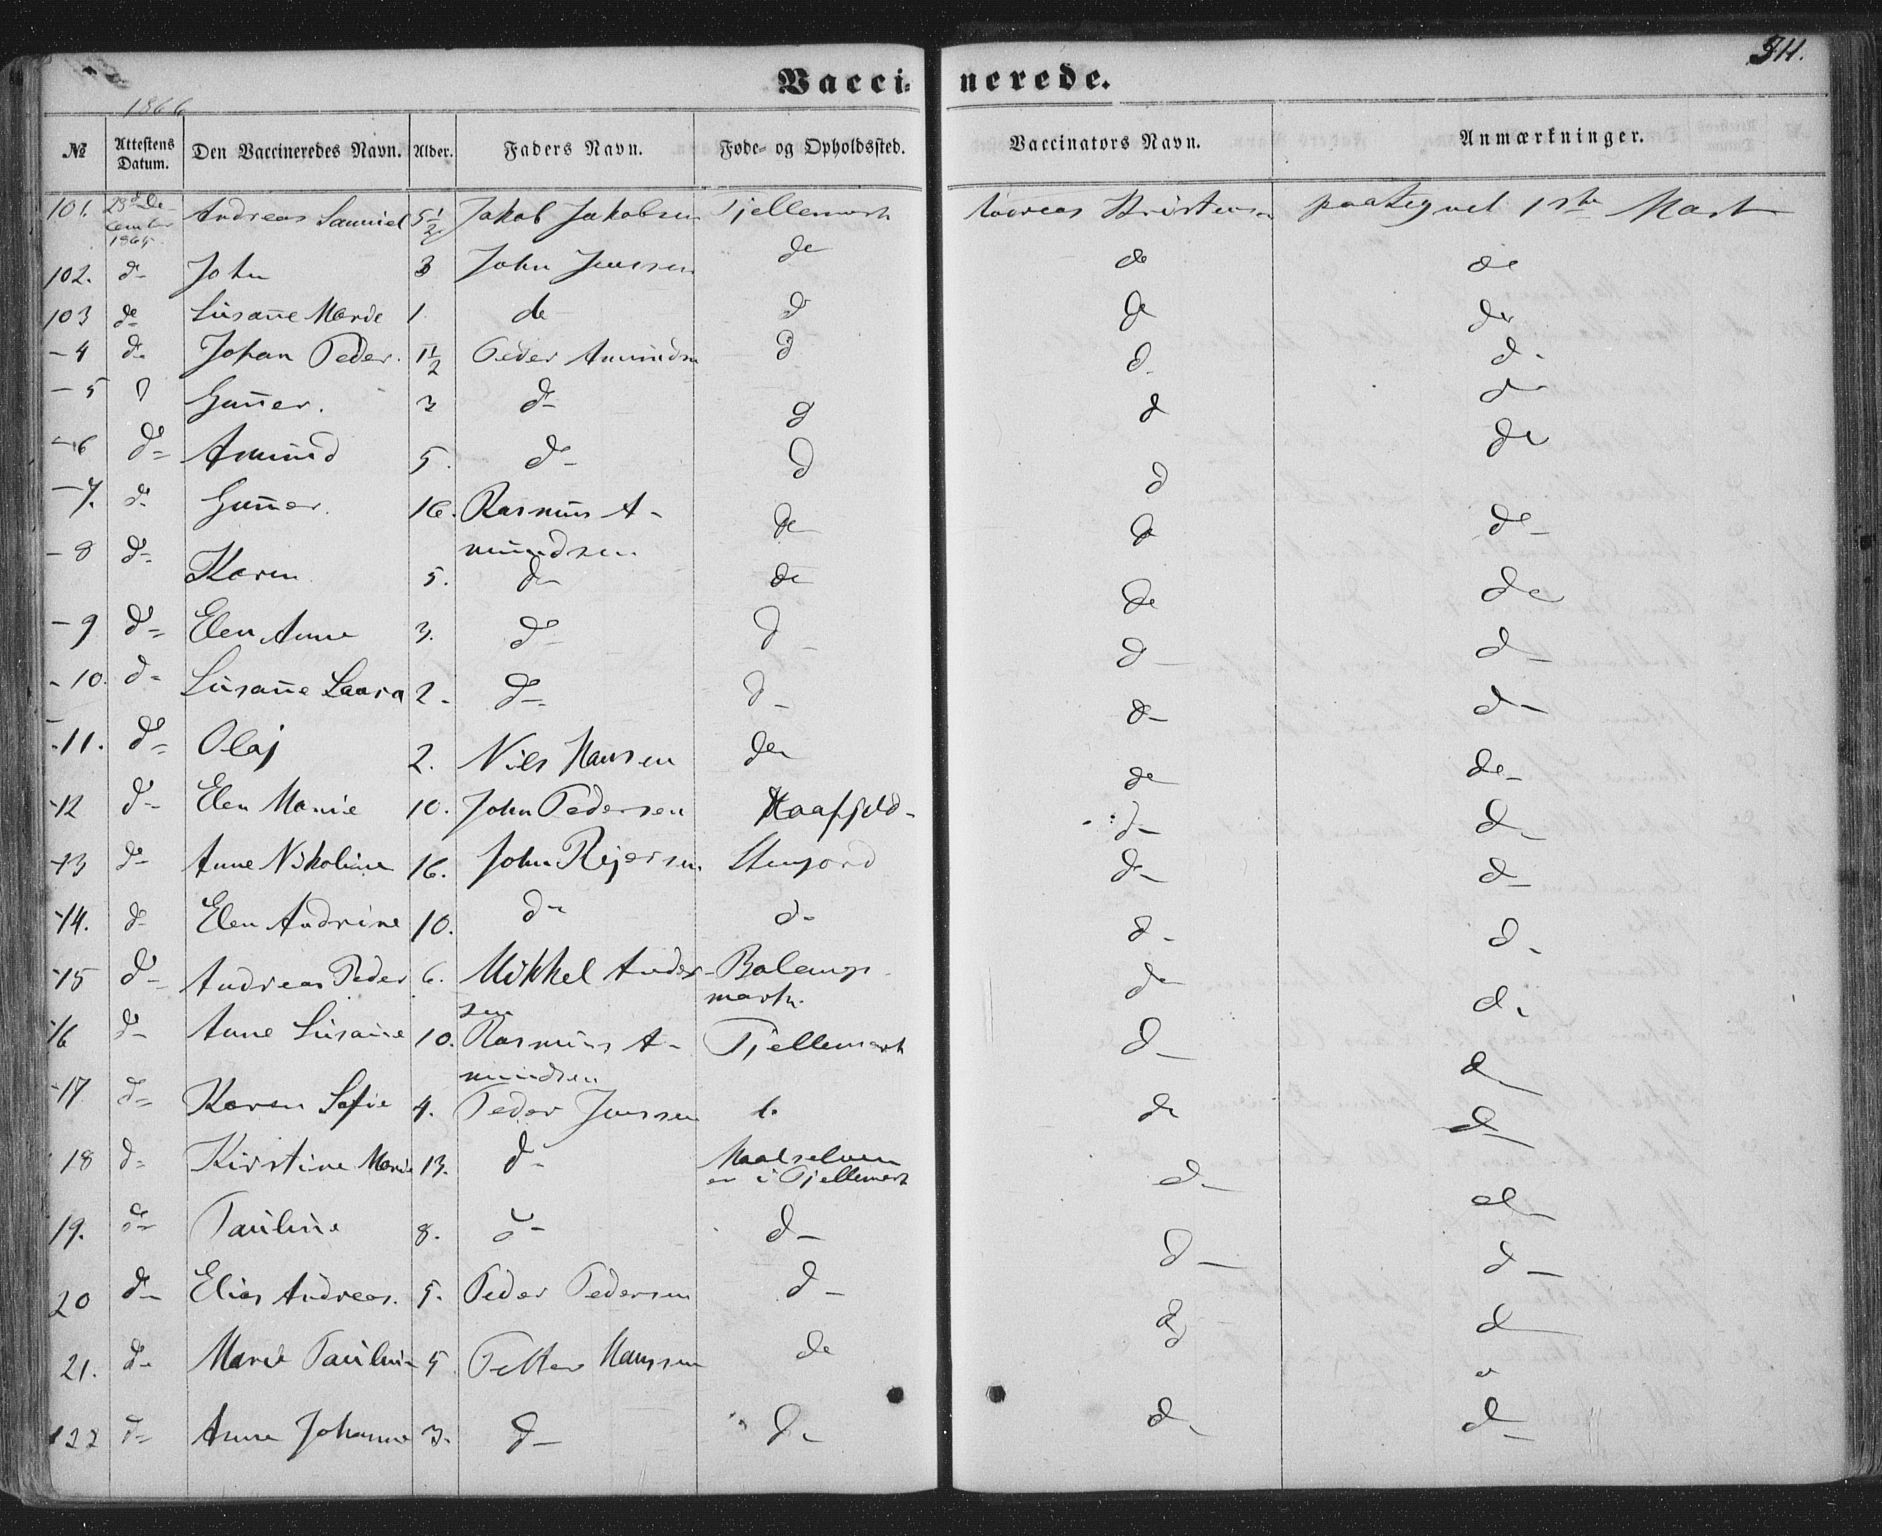 Vaccinerede.
311.
1866
№ Attestens Datum. Den Vaccineredes Navn. Alder. Faders Navn. Føde- og Opholdssted. Vaccinators Navn. Anmærkninger.
101. 23d De-cember 1865. Andreas Samuel 5½ Jakob Jakobsen Fjellemark Kristensen paategnet 1ste Mark
102. d- John 3 John Jenssen do do do
103 do Susan̄e Marie 1. do d do do
-4 d- Johan Peder. 1½ Peder Amundsn d d d-
-5 d Gun̄er. 3 d- d d d
-6 d- Amund 5. d- d d do
-7. d- Gun̄er. 16. Rasmus A-mundsen do d d-
-8 d- Karen 5. do do do do
-9 d- Elen Anne 3. d- d- d- d-
-10. d- Susan̄e Laara 2. d- d- d- d-
-11. d- Olaj 2. Nils Hansen do do do-
-12 d- Elen Marie 10. John Pedersen Haafjeld- d- d-
-13 d- Anne Nikoline 16. John Rejersen Stenjord d- d-
-14. d- Elen Andrine 10. d- d- d- d-
-15 d- Andreas Peder 6. Mikkel Ander-sen Balangsmark. d- d-
-16 d- Anne Susan̄e 10. Rasmus A-mundsen Fjellemark d- d-
-17 d- Karen Sofie 4. Peder Jenssen d. d- d-
18 d- Kirstine Marie 13. d- Maalselven er i Fjellemark d- d-
19. d- Pauline 8. d- d- d- d-
20 d- Elias Andreas. 5. Peder Pedersen d- d d-
21. d- Marie Paulin- 5 Petter Hanssen do d- d
122 d- Anne Johanne 3. d- d- d- d-